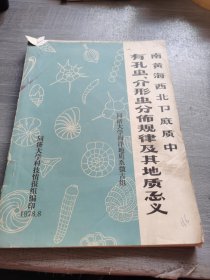 南黄海西北卩底质中
有孔虫、介形虫分佈规律及其地质意义
同济大学海洋地质系微古组
同济大学科技情报组编印
1978.8